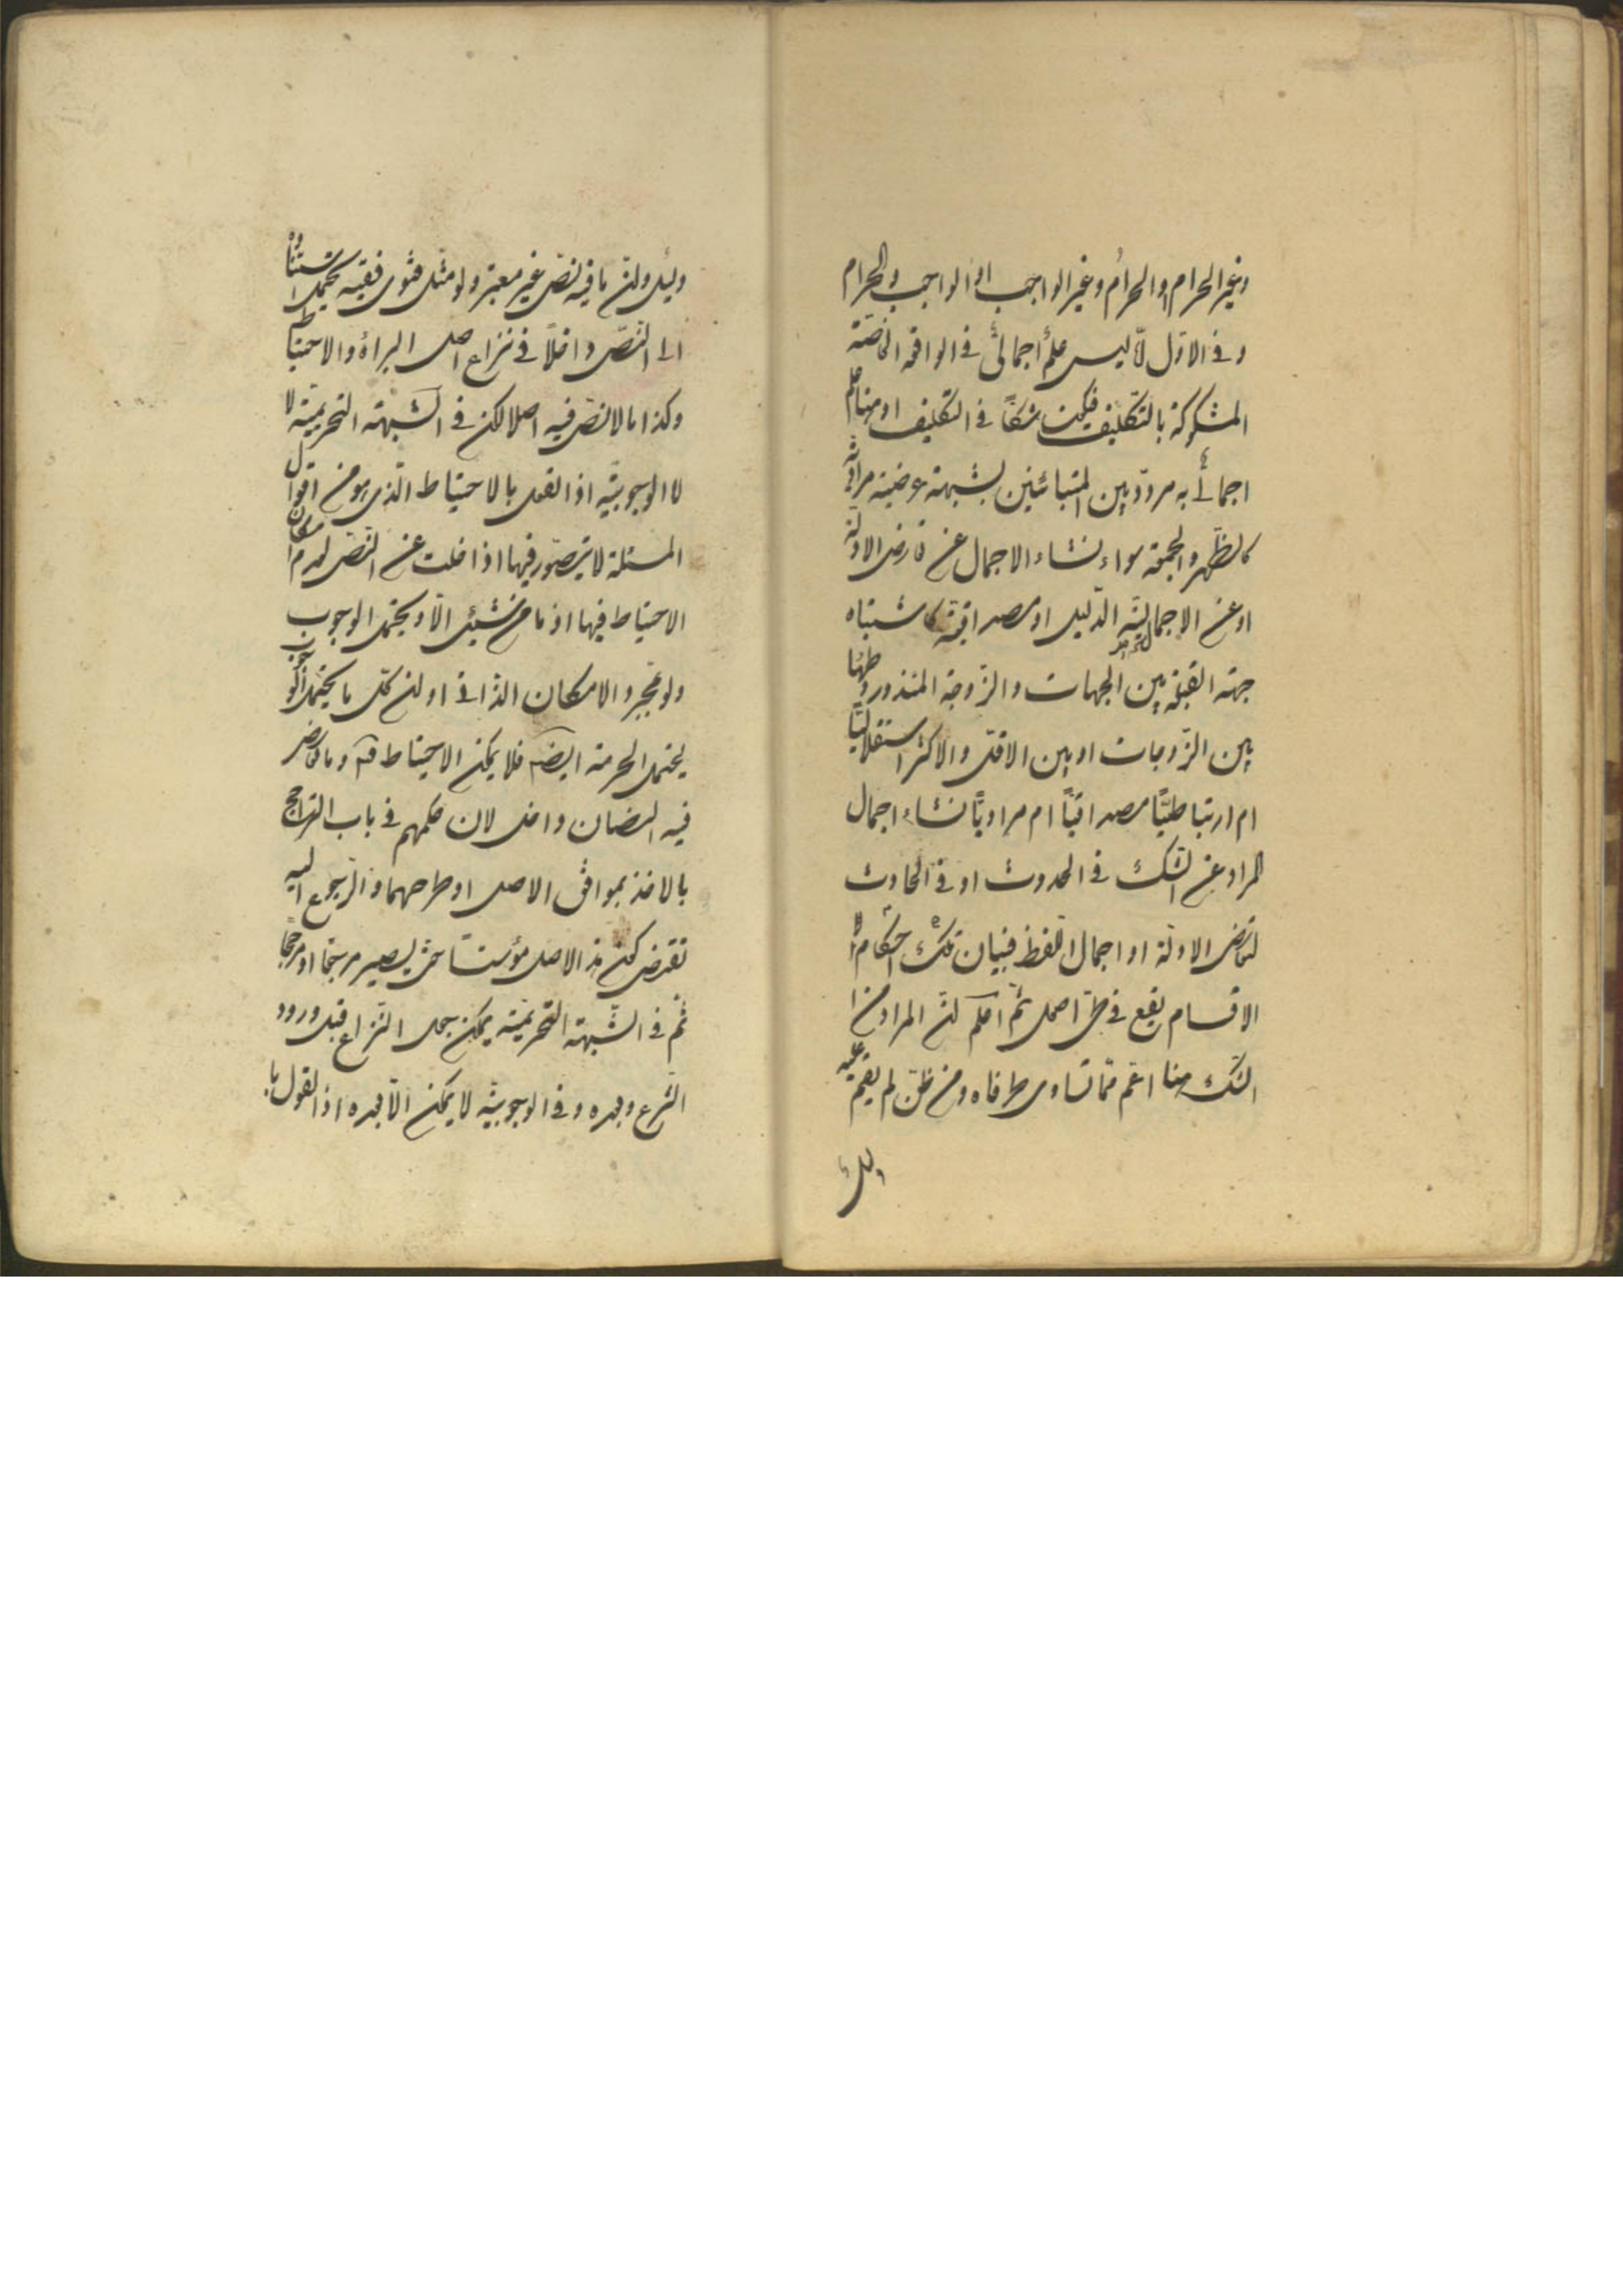 وغير الحرام او الحرام وغير الواجب او الواجب والحرام
وفي الاول لا ليس علم اجمالي في الواقعة الخاصة
المشكوكة بالتكليف فيكون شكا في التكليف او منا علم
اجمالي به مردد بين المتبائنين بشبهة
كالظهر والجمعة سواء نشاء الاجمال عن تعارض الادلة
او عن الاجمال الدليل او مصداقية كاشتباه
جهة القبلة بين الجهات والزوجة المنذور وطئها
بين الزوجات او بين الاقل والاكثر استقلاليا
ام ارتباطيا مصداقيا ام مراديا نشاء اجمال
المراد عن الشك في الحدوث او في الحادث
لتعارض الادلة او اجمال اللفظ فبيان تلك احكام
الاقسام يقع في طي اصل ثم اعلم ان المراد من
الشك هنا اعم مما تساوى طرفاه ومن ظن لم يقم عليه
دليل
دليل وان ما فيه نص غير معتبر ولو مثل فتوى فقيه يحتمل استناده
الى النص داخلا في نزاع اصل البراءة والاحتياط
وكذا ما لا نص فيه اصلا لكن في الشبهة التحريمية لا
لا الوجوبية اذ القول بالاحتياط الذي هو من اقوال
المسئلة لا يتصور فيها اذا خلت عن النص لعدم امكان
الاحتياط فيها اذ ما من شيئ الا ويحتمل الوجوب
ولو بمجرد الامكان الذاتي او لان كل ما يحتمل الوجوب
يحتمل الحرمة ايضا فلا يمكن الاحتياط فيه وما تعارض
فيه النصان داخل لان حكمهم في باب التراجيح
بالاخذ بموافق الاصل او طرحهما والرجوع اليه
تقتضي كون هذا الاصل مؤسسا حتى يصير مرجعا او مرجحا
ثم في الشبهة التحريمية يمكن جعل النزاع قبل ورود
الشرع وبعده وفي الوجوبية لا يمكن الا بعده اذ القول با